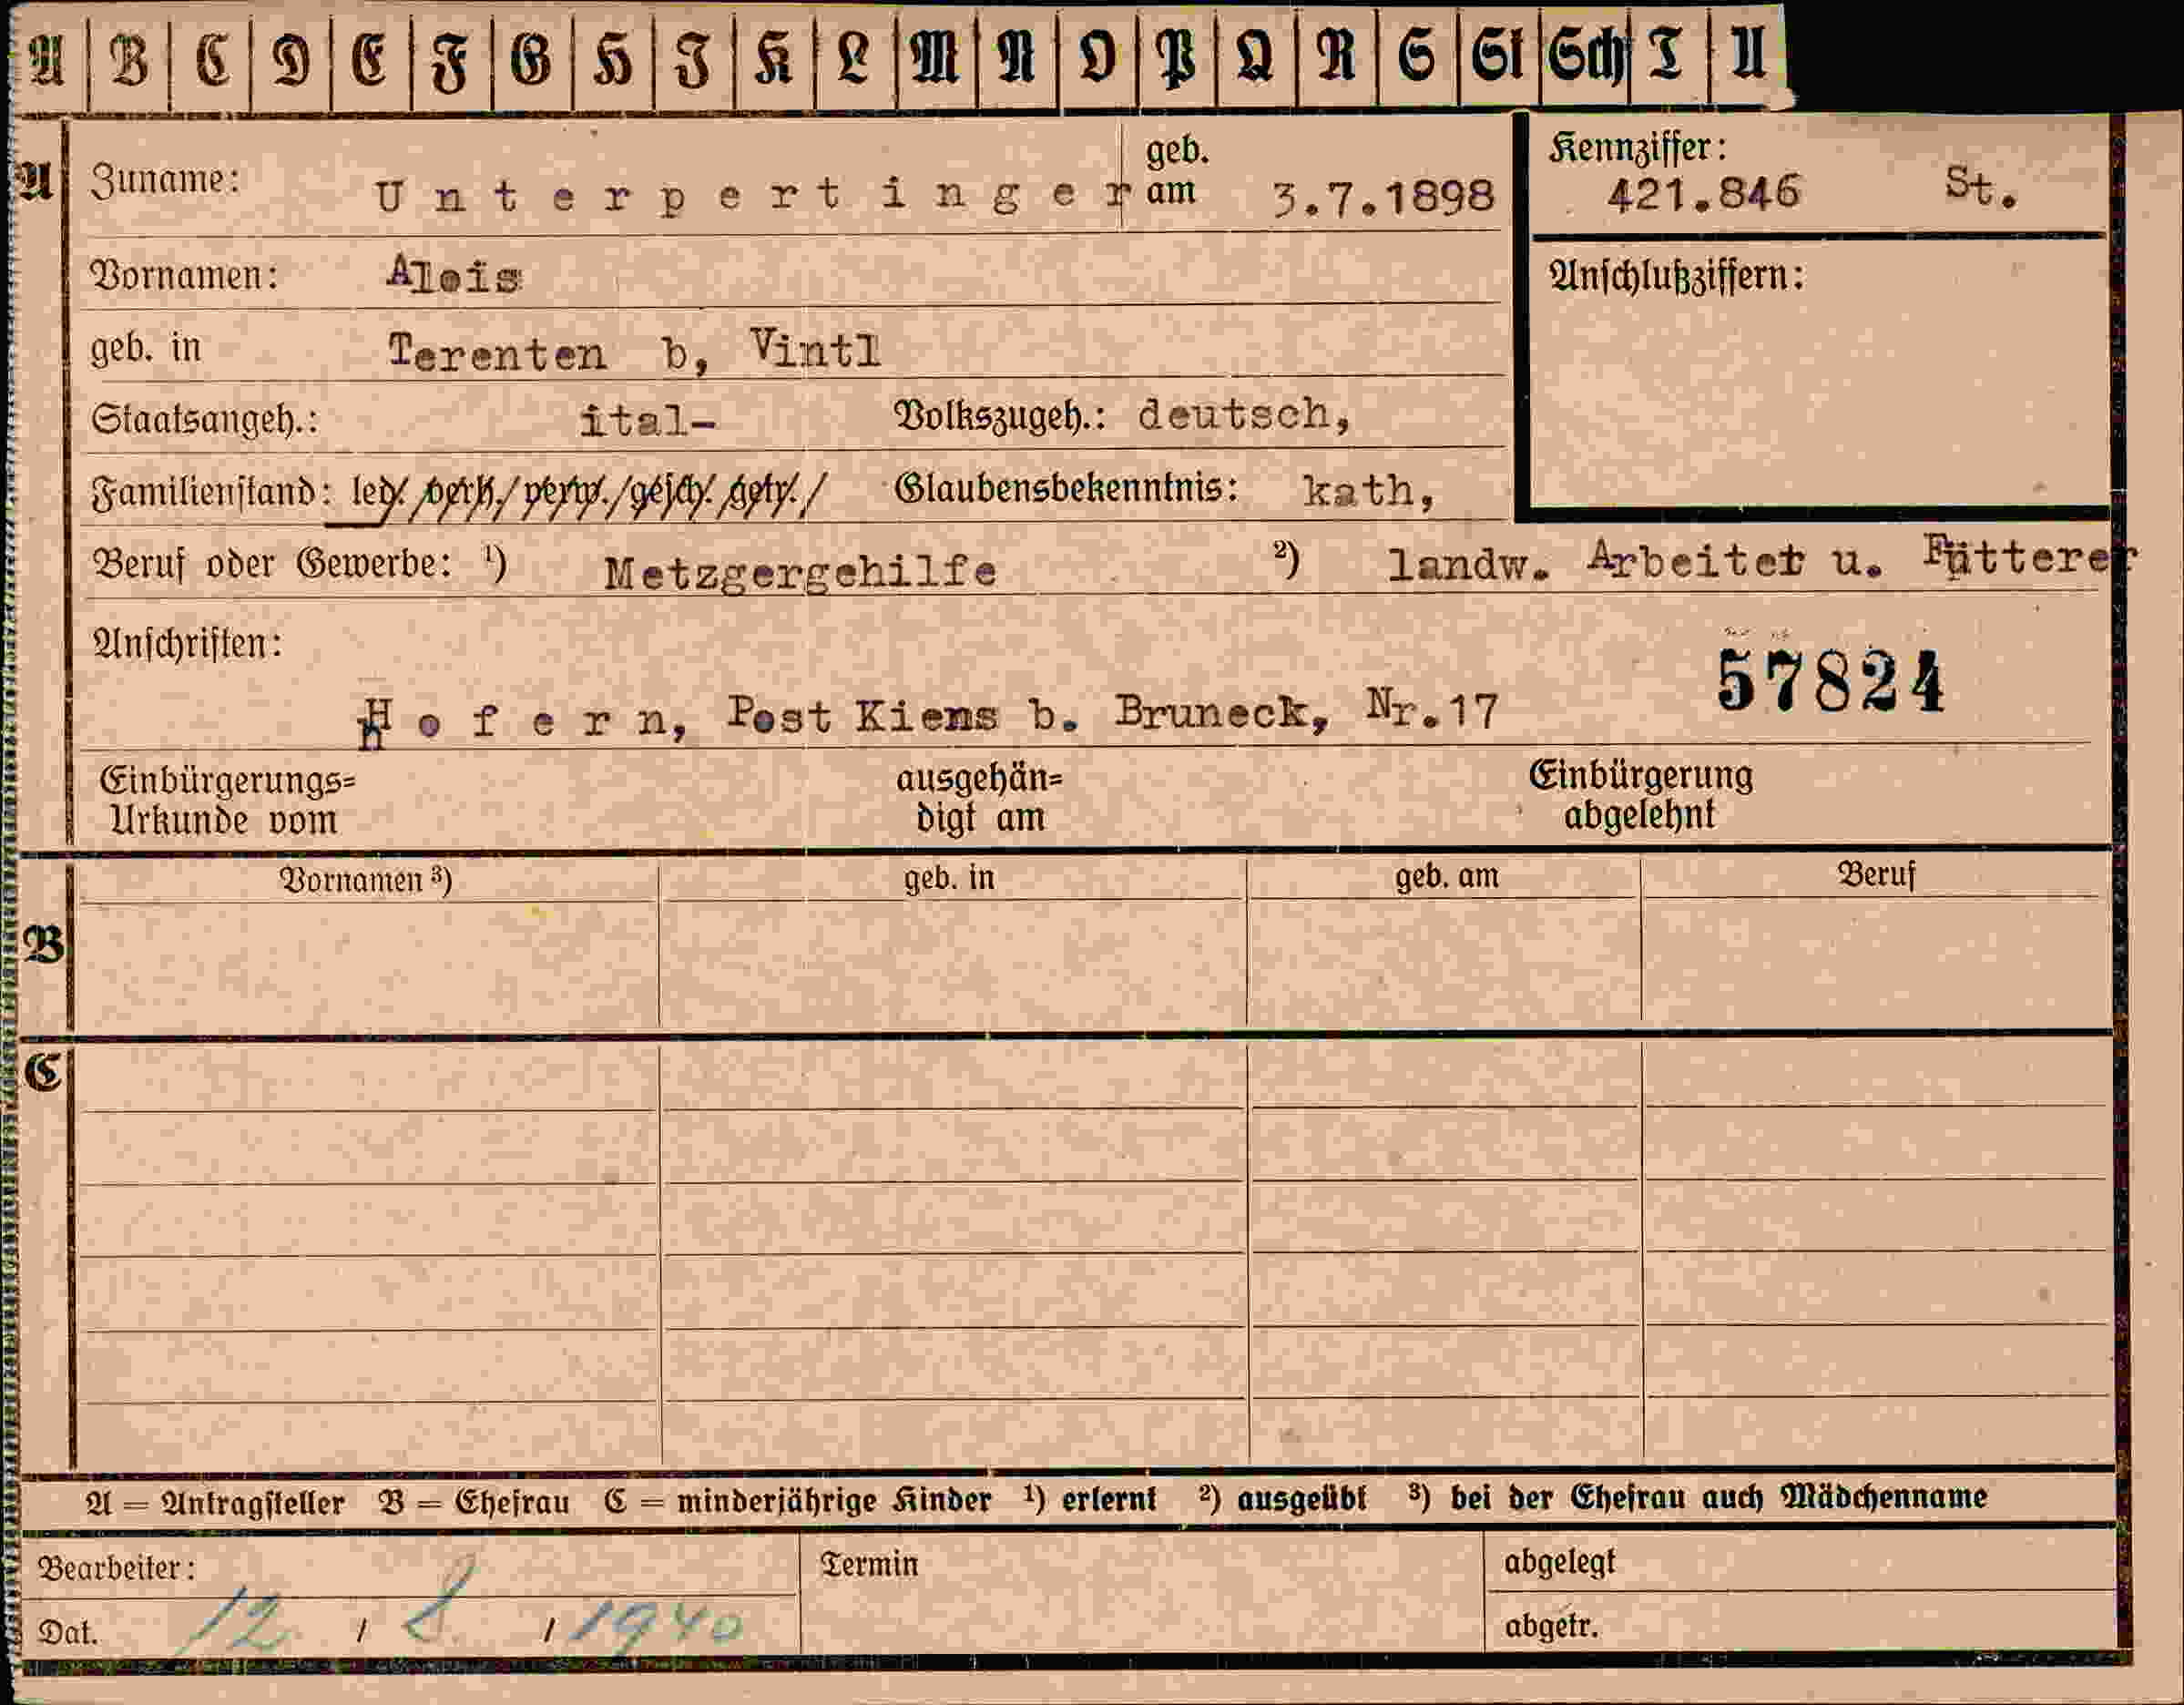 A B C D E F G H J K L M N O P Q R S St Sch T U
A Zuname: Unterpertinger geb. am 3.7.1898
Kennziffer: 421.846 St.
Vornamen: Alois
Anschlußziffern:
geb. in Terenten b, Vintl
Staatsangeh.: ital- Volkszugeh.: deutsch,
Familienstand: led./verh./verw./gesch./getr./ Glaubensbekenntnis: kath,
Beruf oder Gewerbe: ¹) Metzgergehilfe ²) landw. Arbeiter u. Fütterer
Anschriften:
57824
Hofern, Post Kiens b. Bruneck, Nr.17
Einbürgerungs= ausgehän= Einbürgerung
Urkunde vom digt am abgelehnt
Vornamen ³) geb. in geb. am Beruf
B
C
A = Antragsteller B = Ehefrau C = minderjährige Kinder ¹) erlernt ²) ausgeübt ³) bei der Ehefrau auch Mädchenname
Bearbeiter: Termin abgelegt
Dat. 12 / 8. / 1940 abgetr.